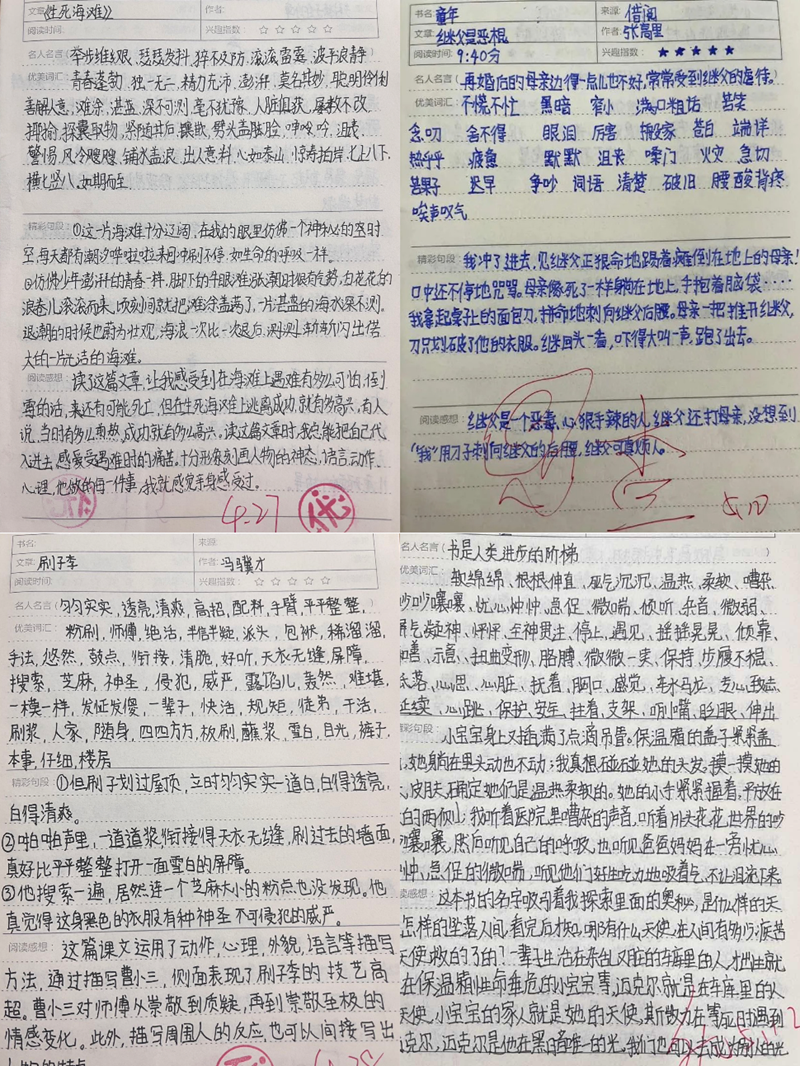 文章:《生死海滩》
作者:
阅读时间:
兴趣指数:☆☆☆☆☆
名人名言 举步维艰、瑟瑟发抖、猝不及防、滚滚雷霆、波平浪静
优美词汇 青春蓬勃、独一无二、精力充沛、澎湃、莫名其妙、聪明伶俐
善解人意、滩涂、湛蓝、深不可测、毫不犹豫、人赃俱获、屡教不改
揶揄、探囊取物、紧随其后、攘取、劈头盖脸、哼哼唧
警惕、风冷飕飕、铺水盖浪、出人意料、心如泰山、惊涛拍岸、七上八下、
横七竖八、如期而至
精彩句段 ①这一片海滩十分辽阔,在我的眼里仿佛一个神秘的空时
空,每天都有潮汐哗啦啦来回冲刷不停,如生命的呼吸一样。
②仿佛少年澎湃的青春一样,脚下的平眼滩,涨潮时很有气势,白花花的
浪卷儿滚滚而来,顷刻间就把滩涂盖满了,一片湛蓝的海水深不测。
退潮的时候也蔚为壮观,海浪一次比一次退后,渐渐闪出偌
大的一片光洁的海滩。
阅读感想 读了这篇文章,让我感受到在海滩上遇难有多么可怕,倒
霉的话,来还有可能死亡,但在生死海滩上逃离成功,就有多高兴,有人
说,当时有多么,成功就有多么高兴。读这篇文章时,我总能把自己代
入进去,感受受遇难时的痛苦。十分形象刻画人物的神态、语言、动作、
心理,他做的每一件事,我就感觉亲身感受过。
4.27
优
书名:童年
来源:借阅
文章:继父是恶棍
作者:张嵩里
阅读时间:9:40分
兴趣指数:★★★★★
名人名言 再婚后的母亲边得一点儿也不好,常常受到继父的虐待。
优美词汇 不慌不忙 黑暗 窄小 满口粗话
念叨 舍不得 眼泪 厉害 搬家 苍白 端详
热乎乎 疲惫 默默 沮丧 嗓门 火灾 急切
苦果子 迟早 争吵 词语 清楚 破旧 腰酸背疼
唉声叹气
精彩句段 我冲了进去,见继父正狠命地踢着瘫倒在地上的母亲!
口中还不停地咒骂。母亲像死了一样躺在地上,手抱着脑袋……
我拿起桌子上的面包刀,拼命地刺向继父后腰。母亲一把推开继父,
刀只划破了他的衣服。继回头一看,吓得大叫一声,跑了出去。
阅读感想 继父是一个恶毒、心狠手辣的人,继父还打母亲,没想到
"我"用刀子刺向继父的后腰,继父可真烦人。
5.10
书名:
来源:
文章:刷子李
作者:冯骥才
阅读时间:
兴趣指数:☆☆☆☆☆
名人名言 匀匀实实,透亮,清爽,高招,配料,手臂,平平整整,
优美词汇 粉刷,师傅,绝活,半信半疑,派头,包袱,稀溜溜,
手法,悠然,鼓点,衔接,清脆,好听,天衣无缝,屏障,
搜索,芝麻,神圣,侵犯,威严,露馅儿,轰然,难堪,
一模一样,发怔发傻,一辈子,快活,规矩,徒弟,干活,
刷浆,人家,随身,四四方方,蘸浆,雪白,目光,裤子,
本事,仔细,楼房
精彩句段 ①但刷子划过屋顶,立时匀匀实实一道白,白得透亮,
白得清爽。
②啪啪声里,一道道浆,衔接得天衣无缝,刷过去的墙面,
真好比平平整整打开一面雪白的屏障。
③他搜索一遍,居然连一个芝麻大小的粉点也没发现。他
真觉得这身黑色的衣服有种神圣不可侵犯的威严。
阅读感想 这篇课文运用了动作,心理,外貌,语言等描写
方法,通过描写曹小三,侧面表现了刷子李的技艺高
超。曹小三对师傅从崇敬到质疑,再到崇敬至极的
情感变化。此外,描写周围人的反应,也可以间接写出
名人名言 书是人类进步的阶梯
优美词汇
软绵绵、根根伸直、死气沉沉、温热、柔软、嘈杂
吵吵嚷嚷、忧心忡忡、急促、微喘、倾听、杂音、微弱、
屏气凝神、怦怦、全神贯注、停止、遇见、摇摇晃晃、倾靠、
和善、示意、扭曲变形、胳膊、微微一笑、保持、步履不稳、
心思、心脏、扰着、胸口、感觉、车水马龙、
延续、心跳、保护、安军、拄着、支架、咧小嘴、眨眼、伸出
精彩句段 小宝宝身上对插满了点滴吊管。保温箱的盖子紧紧盖
,她躺在里头动也不动;我真想碰碰她的头发,摸一摸她的
皮肤,确定她们是温热柔软的。她的小手紧紧握着,平放在
的两侧;我听着医院里嘈杂的声音,听着朋友花花世界的吵
嚷嚷,然后听见自己的呼吸,也听见爸爸妈妈在一旁忧心
忡,急促的微喘,听见他们好生吃力地吸着气,不让泪流下来。
阅读感想 这本书的名字吸引着我探索里面的奥秘,是什么样的天
怎样的坠落人间,看完后才知,哪有什么天使,在人间有多少派苦
天使救的了的?一辈子生活在杂乱又脏的车库里的人,才出生就
在保温箱性命垂危的小宝宝等,迈克尔就是在车库里的人
天使,小宝宝的家人就是她的天使,斯凯力在寒冷时遇到
迈克尔,迈克尔是他在黑暗唯一的光,我们也可以去成为别人的光